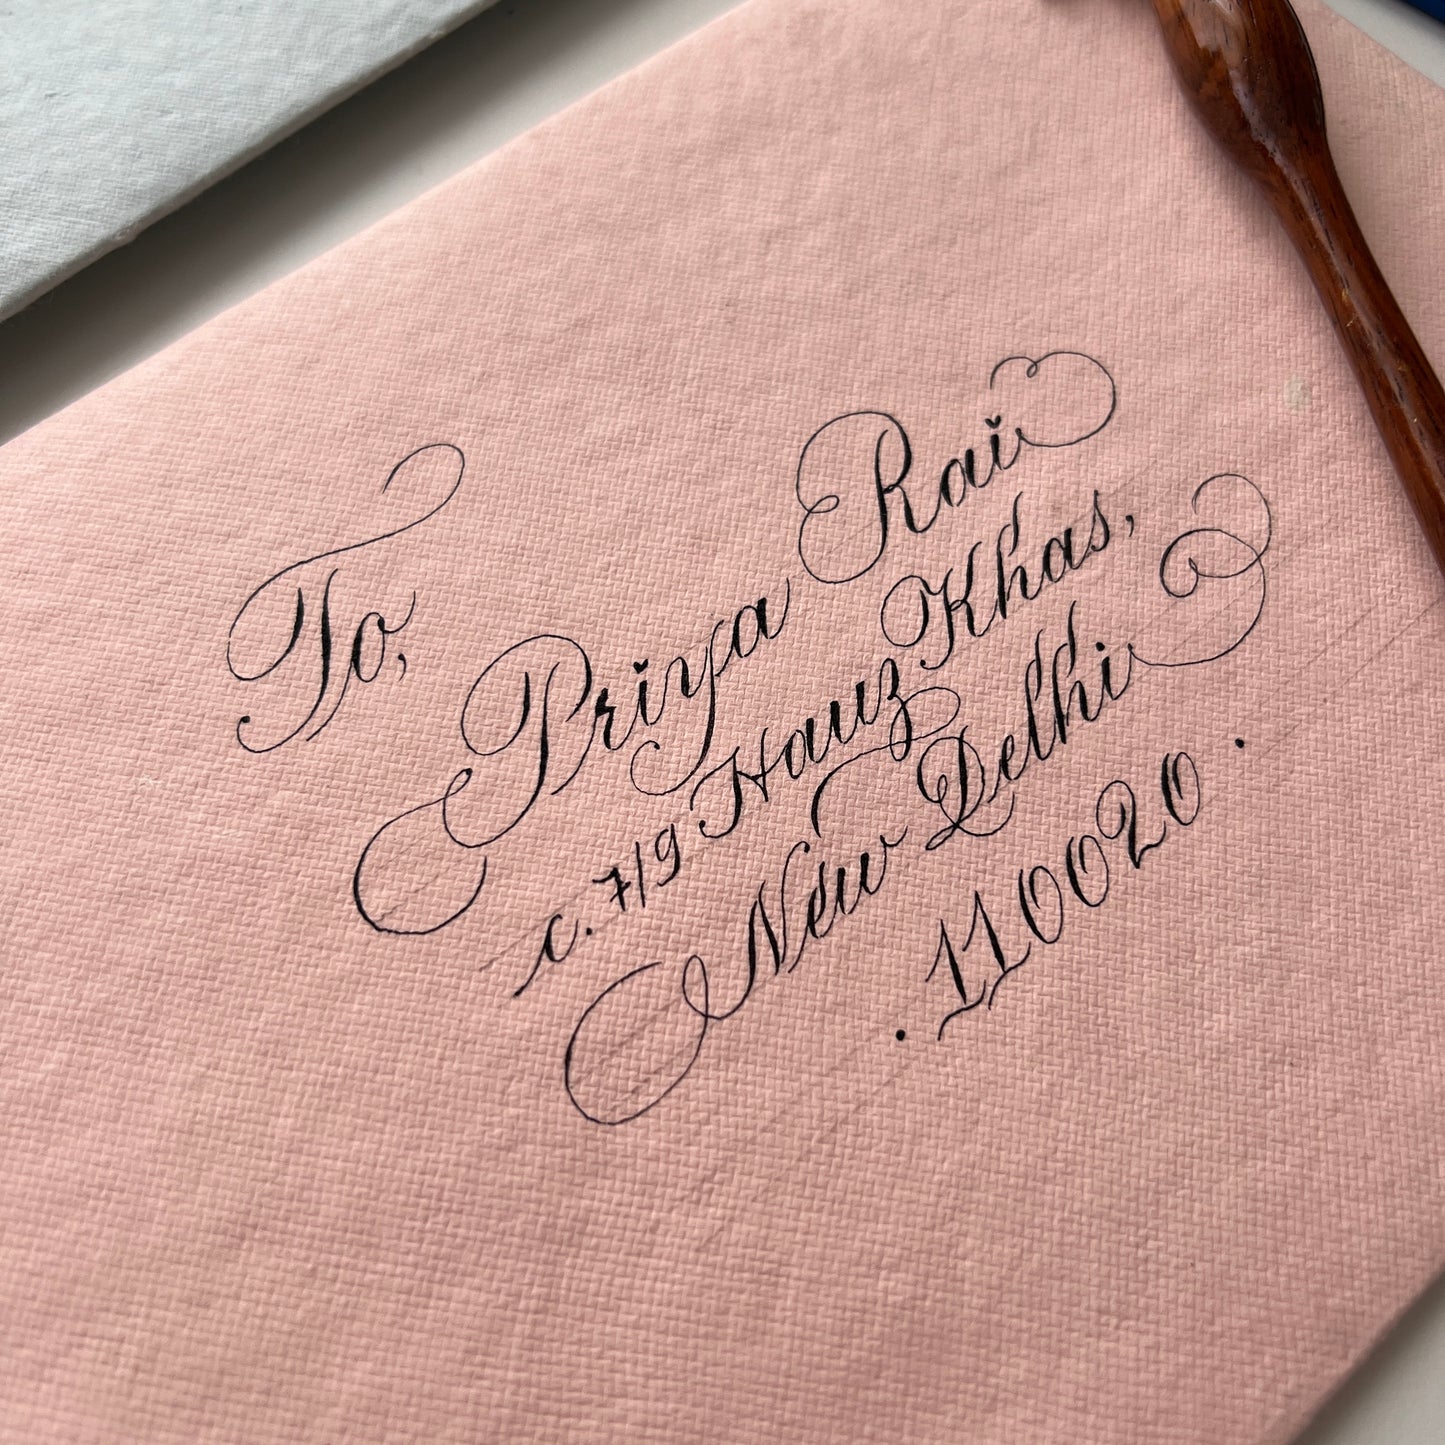 To,
Priya Rai
c. 7/9 Hauz Khas,
New Delhi
. 110020 .